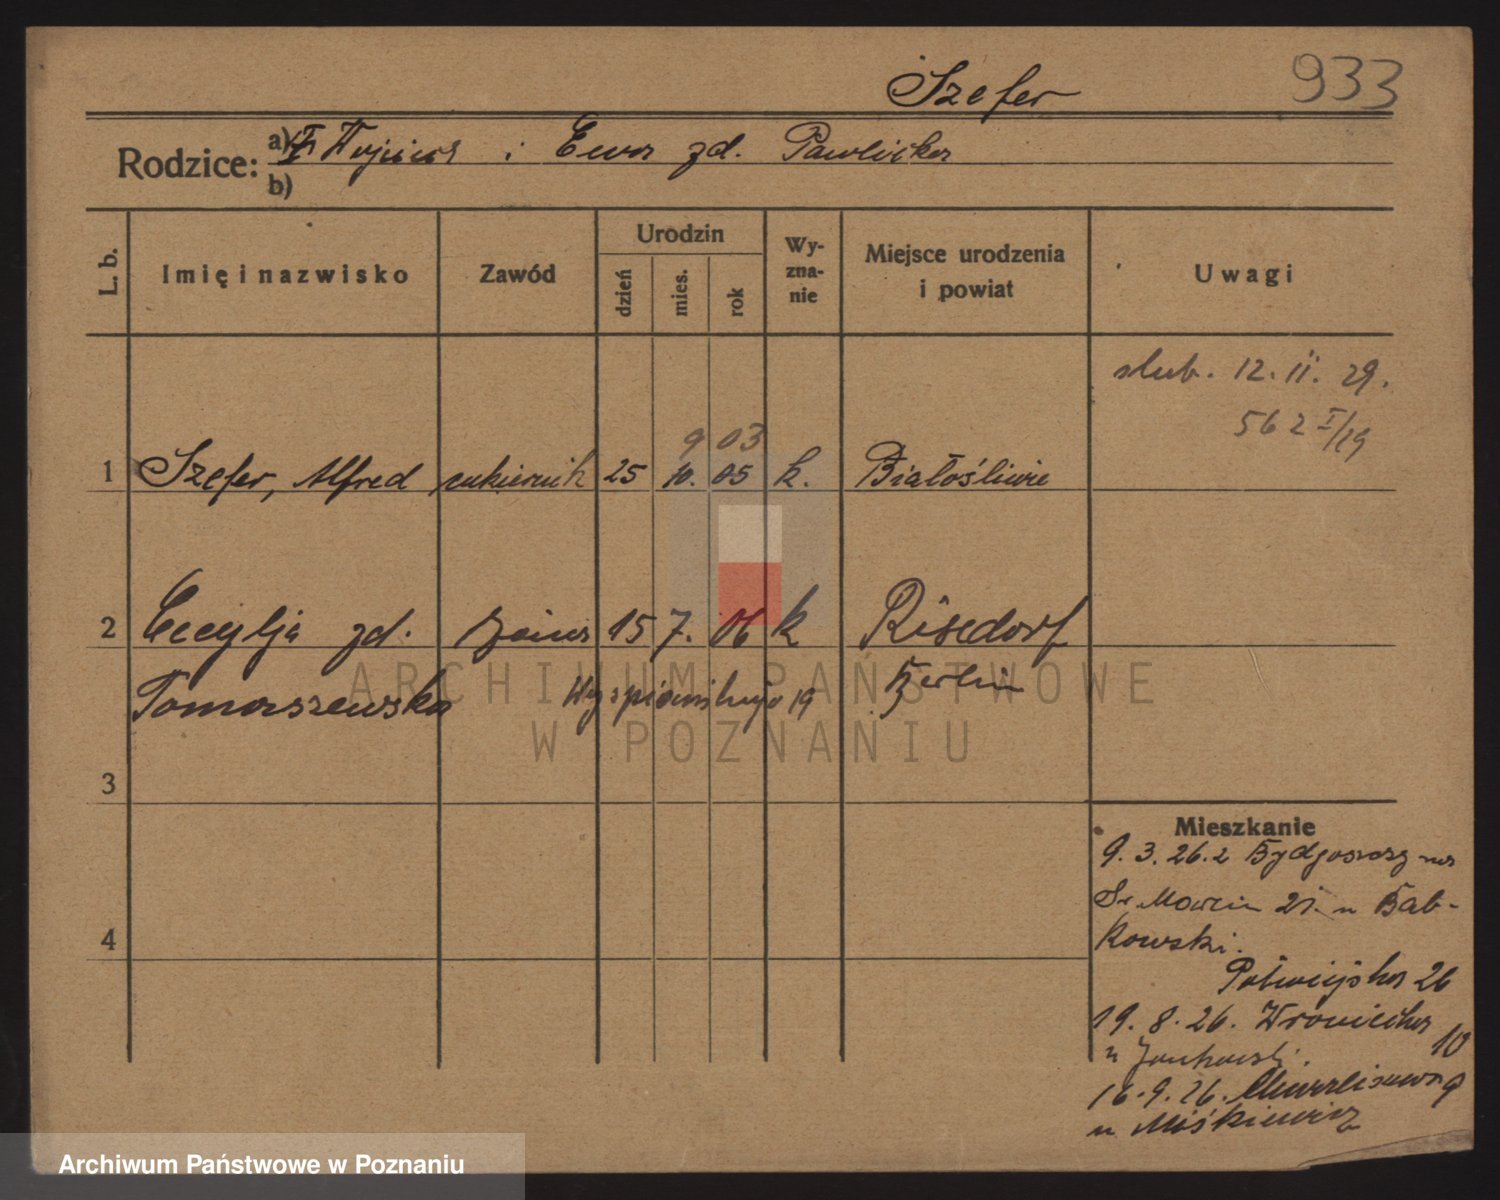 Szefer 933
Rodzice: a) i Ewa zd. Pawlicka
b)
L. b. Imię i nazwisko Zawód Urodzin dzień mies. rok Wy-zna-nie Miejsce urodzenia i powiat Uwagi
ślub. 12. II. 29.
562 I/29
9 03
1 Szefer, Alfred cukiernik 25 10. 05 k. Białośliwie
2 Cecylja zd. żona 15 7. 06 k Risedorf
Tomaszewska Wyspiańskiego 19 Berlin
3
Mieszkanie
9. 3. 26. z Bydgoszcz na
Św. Marcin 21. u Bab-
4 kowski.
Półwiejska 26
19. 8. 26. Wroniecka 10
u Jankowski.
16. 9. 26. Chwaliszewo 9
u Miśkiewicz
ARCHIWUM PAŃSTWOWE
W POZNANIU
Archiwum Państwowe w Poznaniu